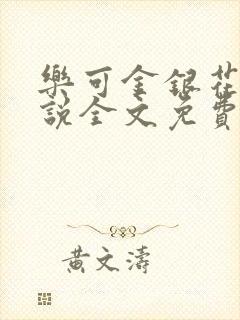 樂可金銀花
說全文免費
黃文濤